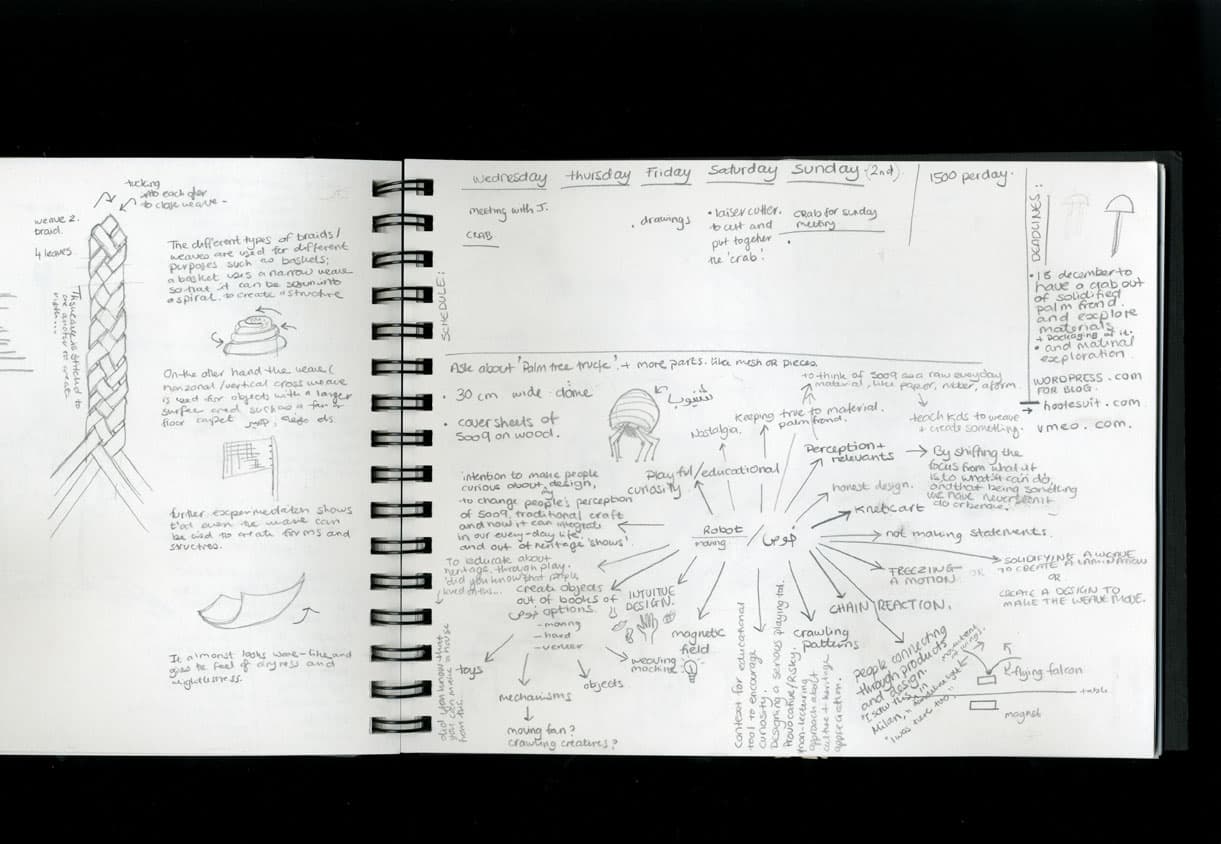 tucking
into each other
to close weave -
weave 2.
braid.
4 leaves
The different types of braids/
weaves are used for different
purposes such as baskets;
a basket uses a narrow weave
so that it can be sewn into
a spiral, to create a structure
On the other hand the weave(
horizonal/vertical cross weave
is used for objects with a larger
surface area such as a fan or
floor carpet
further experimentation shows
that even the weave can
be used to create forms and
structures.
It almost looks wave-like and
gives the feel of airyness and
weightlessness.
SCHEDULE:
Wednesday
meeting with J.
CRAB
Thursday
Friday
. drawings
Saturday
• laiser cutter.
to cut and
put together
the 'crab'.
Sunday (2nd)
CRAB for sunday
meeting
1500 per day.
DEADLINES:
• 18 december to
have a crab out
of solidified
palm frond.
and explore
materials
+ packaging of it.
• and material
exploration
WORDPRESS.com
FOR BLOG.
→ hootesuit.com
vmeo.com.
Ask about 'Palm tree trucle', + more parts. like mesh or pieces.
• 30 cm wide dome
• cover sheets of
soog on wood.
to think of soog as a raw everyday
material, like paper, rubber, aform.
→teach kids to weave
+ create something.
Keeping true to material.
palm frond.
Nostalgia.
Playful/educational
curiosity
Perception +
relevants
→ By shifting the
focus from what it
is to what it can do,
and that being something
we have never seen it
do or behave.
honest design.
Kneticart
not making statements.
FREEZING
A MOTION
OR
SOLIDIFYING A WEAVE
TO CREATE A LAMINATION
OR
CREATE A DESIGN TO
MAKE THE WEAVE MOVE.
CHAIN REACTION.
Robot
moving
/ خوص
intention to make people
curious about design,
to change people's perception
of soog, traditional craft
and how it can integrate
in our every-day life,
and out of heritage 'shows'.
To educate about
heritage, through play.
'did you know that people
lived in this...
did you know that
you can make a house
from this
create objects
out of books of
خوص options.
- moving
- hard
- veneer
toys
mechanisms
moving fan?
crawling creatures?
objects
INTUITIVE
DESIGN.
weaving
machine.
magnetic
field
Context for educational
tool to encourage
curiosity.
Designing a serious playing tool.
Provocative/Risky.
non-lecturing
approach about
culture + heritage
appreciation.
crawling
patterns
people connecting
through products
and design.
"I saw this in
Milan,"
"I was there too,"
flying falcon
table
magnet